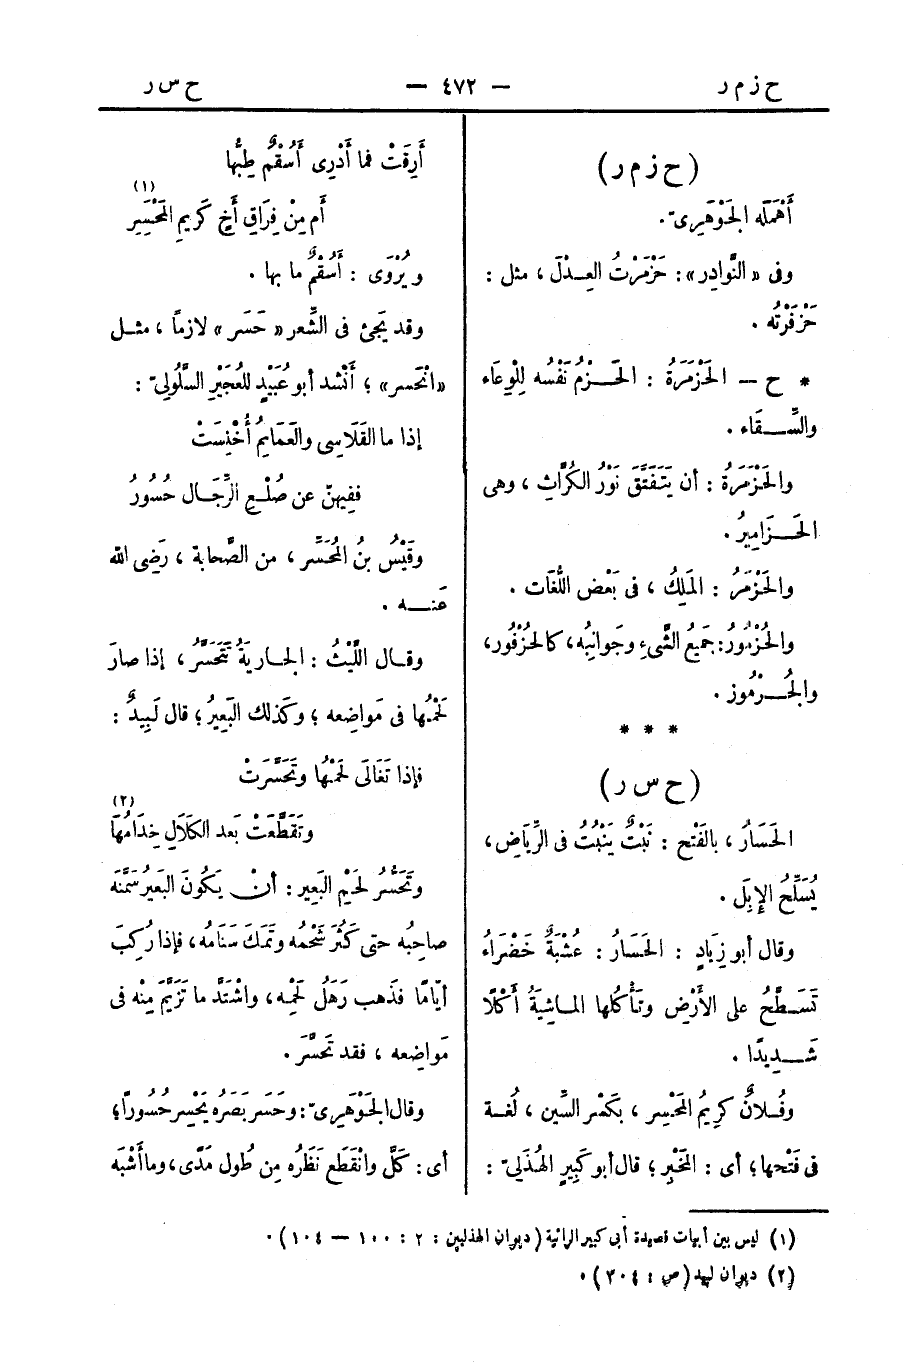 ح ز م ر
— ٤٧٢ —
ح س ر
(ح ز م ر)
أَهْمَلَه الجَوْهَرِىّ.
وفى «النَّوادِر»: حَزْمَرْتُ العِـدْلَ ، مثل :
حَزْفَرْتُه .
* ح — الحَزْمَرَةُ : الحَـزْمُ نَفْسُه لِلْوِعَاء
والسِّـقَاء .
والحَزْمَرَةُ : أن يَتَفَتَّقَ نَوْرُ الكُرَّاثِ ، وهى
الحَـزَامِيرُ .
والحَزْمَرُ : المَلِكُ ، فى بَعْض اللُّغَات .
والحُزْمُورُ: جَمِيعُ الشَّىءِ وجَوانِبُه، كالحُزْفُور،
والحُـرْمُوز .
* * *
(ح س ر)
الحَسَارُ ، بالفَتْح : نَبْتٌ يَنْبُتُ فى الرِّيَاض ،
يُسَلِّحُ الإِبِلَ .
وقال أبو زِيَادٍ : الحَسَارُ : عُشْبَةٌ خَضْرَاءُ
تَسَـطَّحُ على الأَرْض وتَأْكُلها المـاشِيَةُ أَكْلًا
شَـدِيدًا .
وفُـلانٌ كَرِيمُ المَحْسِر ، بكَسْر السِّين ، لُغـة
فى فَتْحها؛ أى : المَخْبِر ؛ قال أبو كَبِيرٍ الهُذَلىّ :
أَرِقَتْ فما أَدْرِى أَسُقْمٌ طِبُّها
أم مِنْ فِرَاقِ أخٍ كَرِيمِ المَحْسِرِ (١)
ويُرْوَى : أَسُقْمٌ ما بها .
وقد يَجِئُ فى الشِّعر «حَسَر» لازماً ، مثـل
«انْحَسر» ؛ أَنْشد أبو عُبَيْدٍ للعُجَيْرِ السَّلُولِىّ :
إذا ما القَلَاسِى والعَمَايِمُ أُخْنِسَتْ
ففِيهِنّ عن صُلْعِ الرِّجَال حُسُورُ
وقَيْسُ بنُ المُحَسَّر ، من الصَّحابة ، رَضِى الله
عَنـه .
وقـال اللَّيْثُ : الجـاريَةُ تَتَحَسَّرُ ، إذا صارَ
لَحْمُها فى مَواضِعه ؛ وكذلك البَعِيرُ ؛ قال لَبِيدٌ :
فإذا تَغَالَى لَحْمُها وتَحَسَّرَتْ
وتَقَطَّعَتْ بَعد الكَلَالِ خِدَامُهَا (٢)
وتَحَسُّرُ لَحْمِ البَعِير : أنْ يَكُونَ البَعِيرُ سَمَّنَه
صاحِبُه حتى كَثُرَ شَحْمُه وتَمَكَ سَنَامُه ، فإذا رُكِبَ
أيّامًا فذَهب رَهَلُ لَحْمِه ، واشْتَدَّ ما تَزَيَّمَ مِنْه فى
مَواضِعه ، فقد تَحَسَّرَ .
وقال الجَوْهَرِىّ : وحَسَر بَصَرُه يَحْسِر حُسُورًا ؛
أى : كَلَّ وانْقَطَع نَظَرُه مِن طُول مَدًى ، وما أَشْبَه
(١) ليس بين أبيات قصيدة أبى كبير الرائية (ديوان الهذليين : ٢ : ١٠٠ — ١٠٤) .
(٢) ديوان لبيد (ص : ٣٠٤) .